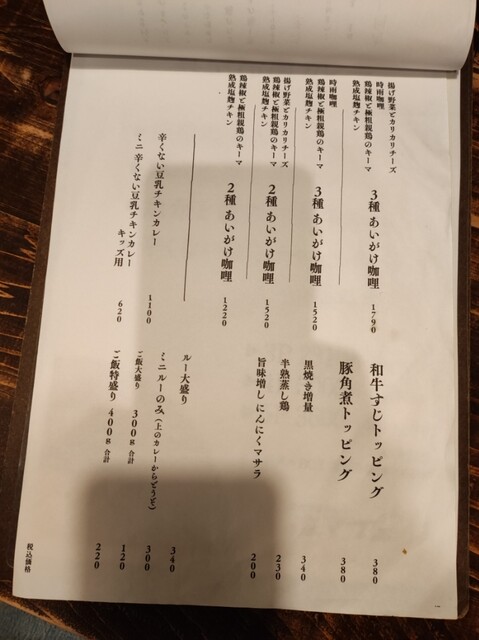 揚げ野菜とカリカリチーズ
時雨咖喱
鶏辣椒と極粗親鶏のキーマ
熟成塩麹チキン
3種 あいがけ咖喱
1790
時雨咖喱
鶏辣椒と極粗親鶏のキーマ
熟成塩麹チキン
3種 あいがけ咖喱
1520
揚げ野菜とカリカリチーズ
鶏辣椒と極粗親鶏のキーマ
熟成塩麹チキン
2種 あいがけ咖喱
1520
鶏辣椒と極粗親鶏のキーマ
熟成塩麹チキン
2種 あいがけ咖喱
1220
辛くない豆乳チキンカレー
1100
ミニ 辛くない豆乳チキンカレー
キッズ用
620
和牛すじトッピング
380
豚角煮トッピング
380
黒焼き増量
340
半熟蒸し鶏
230
旨味増し にんにくマサラ
200
ルー大盛り
340
ミニルーのみ(上のカレーからどうぞ)
300
ご飯大盛り 300g 合計
120
ご飯特盛り 400g 合計
220
税込価格